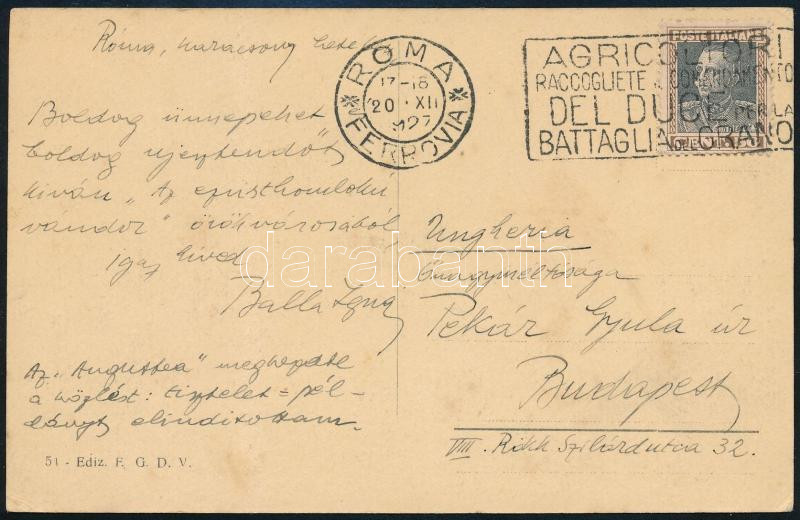 Róma, karácsony hetében
Boldog ünnepeket
boldog ujesztendőt
kiván „Az ezüsthomloku
vándor” örökvárosából
igaz hived
Balla Ignác
Az „Augustea” megkezdte
a közlést: tisztelet = pél-
dányt elindítottam.
51 - Ediz. F. G. D. V.
ROMA
17-18
20 · XII
1927
FERROVIA
AGRICOLTORI
RACCOGLIETE COMANDAMENTO
DEL DUCE PER LA
BATTAGLIA GRANO
POSTE ITALIANE
Ungheria
Őnagyméltósága
Pekár Gyula úr
Budapest
VIII. Rökk Szilárdutca 32.
darabanth.com